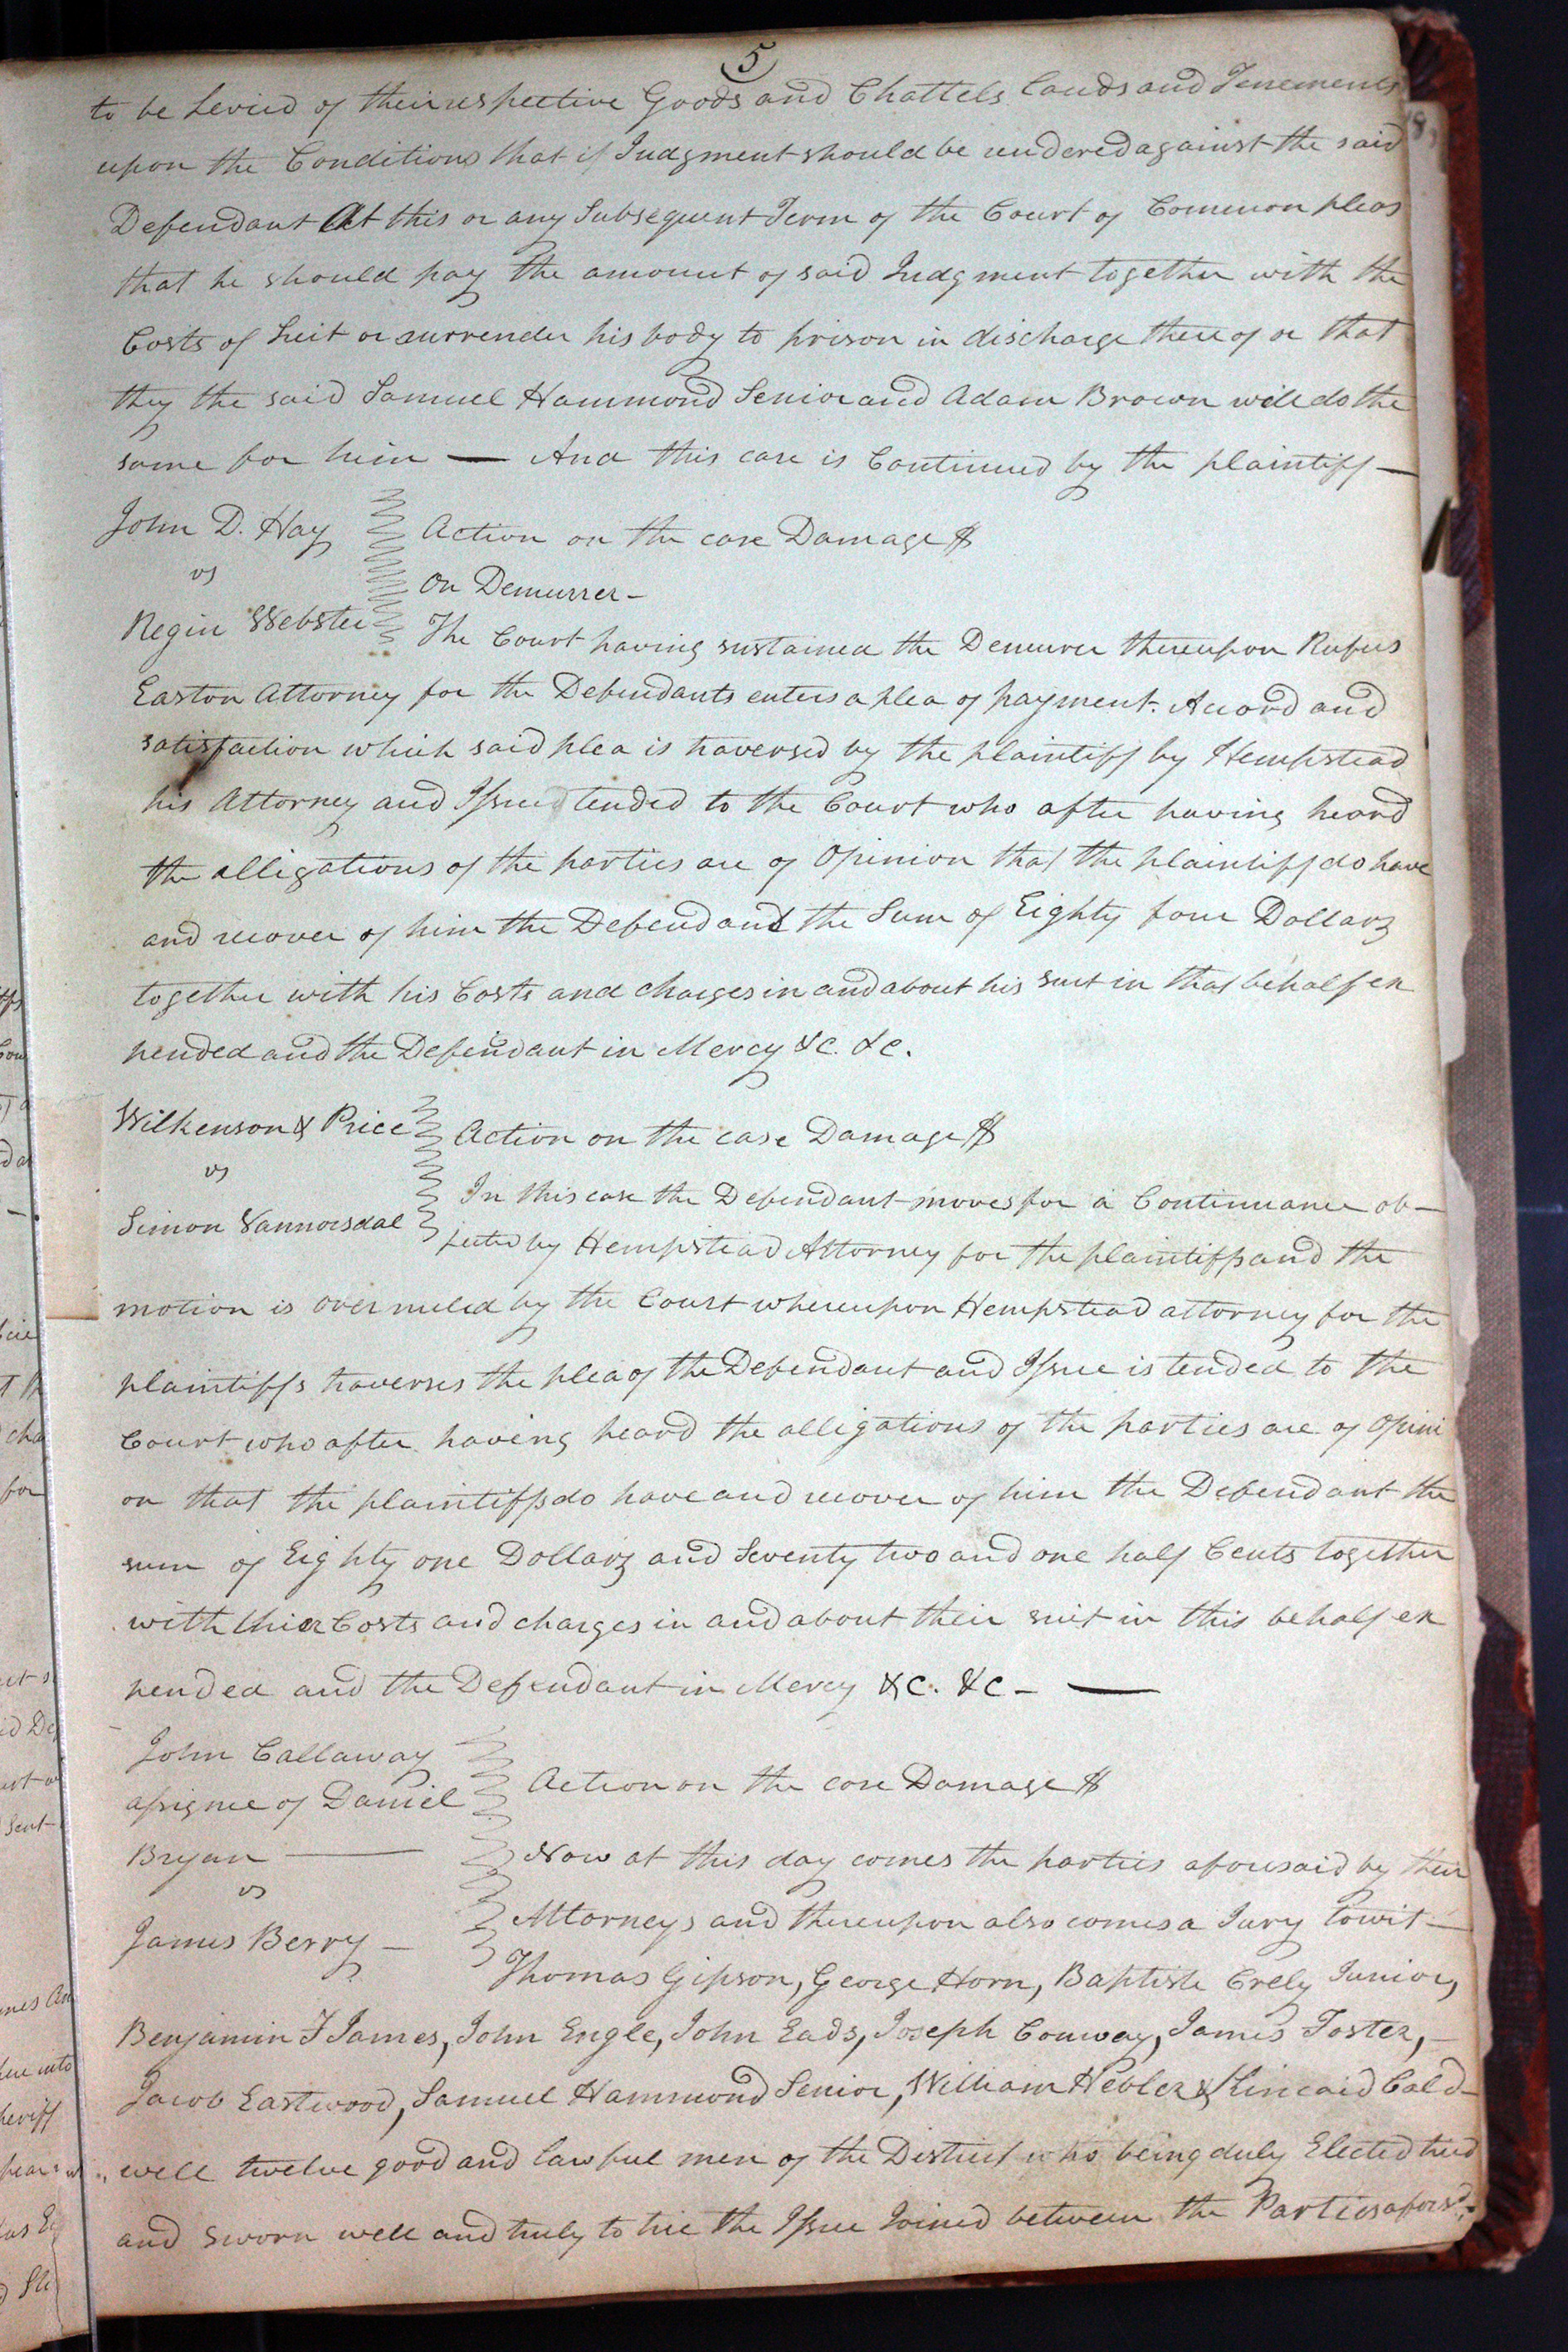 5
to be Levied of their respective Goods and Chattels Lands and Tenements
upon the Conditions that if Judgment should be rendered against the said
Defendant At this or any Subsequent Term of the Court of Common pleas
that he should pay the amount of said Judgment together with the
Costs of Suit or surrender his body to prison in discharge there of or that
they the said Samuel Hammond Senior and Adam Brown will do the
same for him — And this case is Continued by the plaintiff —
John D. Hay
vs
Regin Webster
Action on the case Damage $
On Demurrer —
The Court having sustained the Demurer thereupon Rufus
Easton Attorney for the Defendants enters a plea of payment. Accord and
satisfaction which said plea is traversed by the plaintiff by Hempstead
his Attorney and Issue tended to the Court who after having heard
the alligations of the parties are of Opinion that the plaintiff do have
and recover of him the Defendant the Sum of Eighty four Dollars
together with his Costs and charges in and about his suit in that behalf ex
pended and the Defendant in Mercy &c. &c.
Wilkenson & Price
vs
Simon Vannorsdal
Action on the case Damage $
In this case the Defendant moves for a Continuance ob—
jected by Hempstead Attorney for the plaintiffs and the
motion is over ruled by the Court whereupon Hempstead attorney for the
plaintiffs traverses the plea of the Defendant and Issue is tended to the
Court who after having heard the alligations of the parties are of Opini
on that the plaintiffs do have and recover of him the Defendant the
sum of Eighty one Dollars and Seventy two and one half Cents together
with thier Costs and charges in and about their suit in this behalf ex
pended and the Defendant in Mercy &c. &c — —
John Callaway
assignee of Daniel
Bryan —
vs
James Berry —
Action on the case Damage $
Now at this day comes the parties aforesaid by their
Attorneys and thereupon also comes a Jury towit —
Thomas Gipson, George Horn, Baptiste Crely Junior,
Benjamin F James, John Engle, John Eads, Joseph Conway, James Foster, —
Jacob Eastwood, Samuel Hammond Senior, William Hebler & Kincaid Cald—
well twelve good and lawful men of the District who being duly Elected tried
and sworn well and truly to trie the Issue Joined between the Parties aforsd.